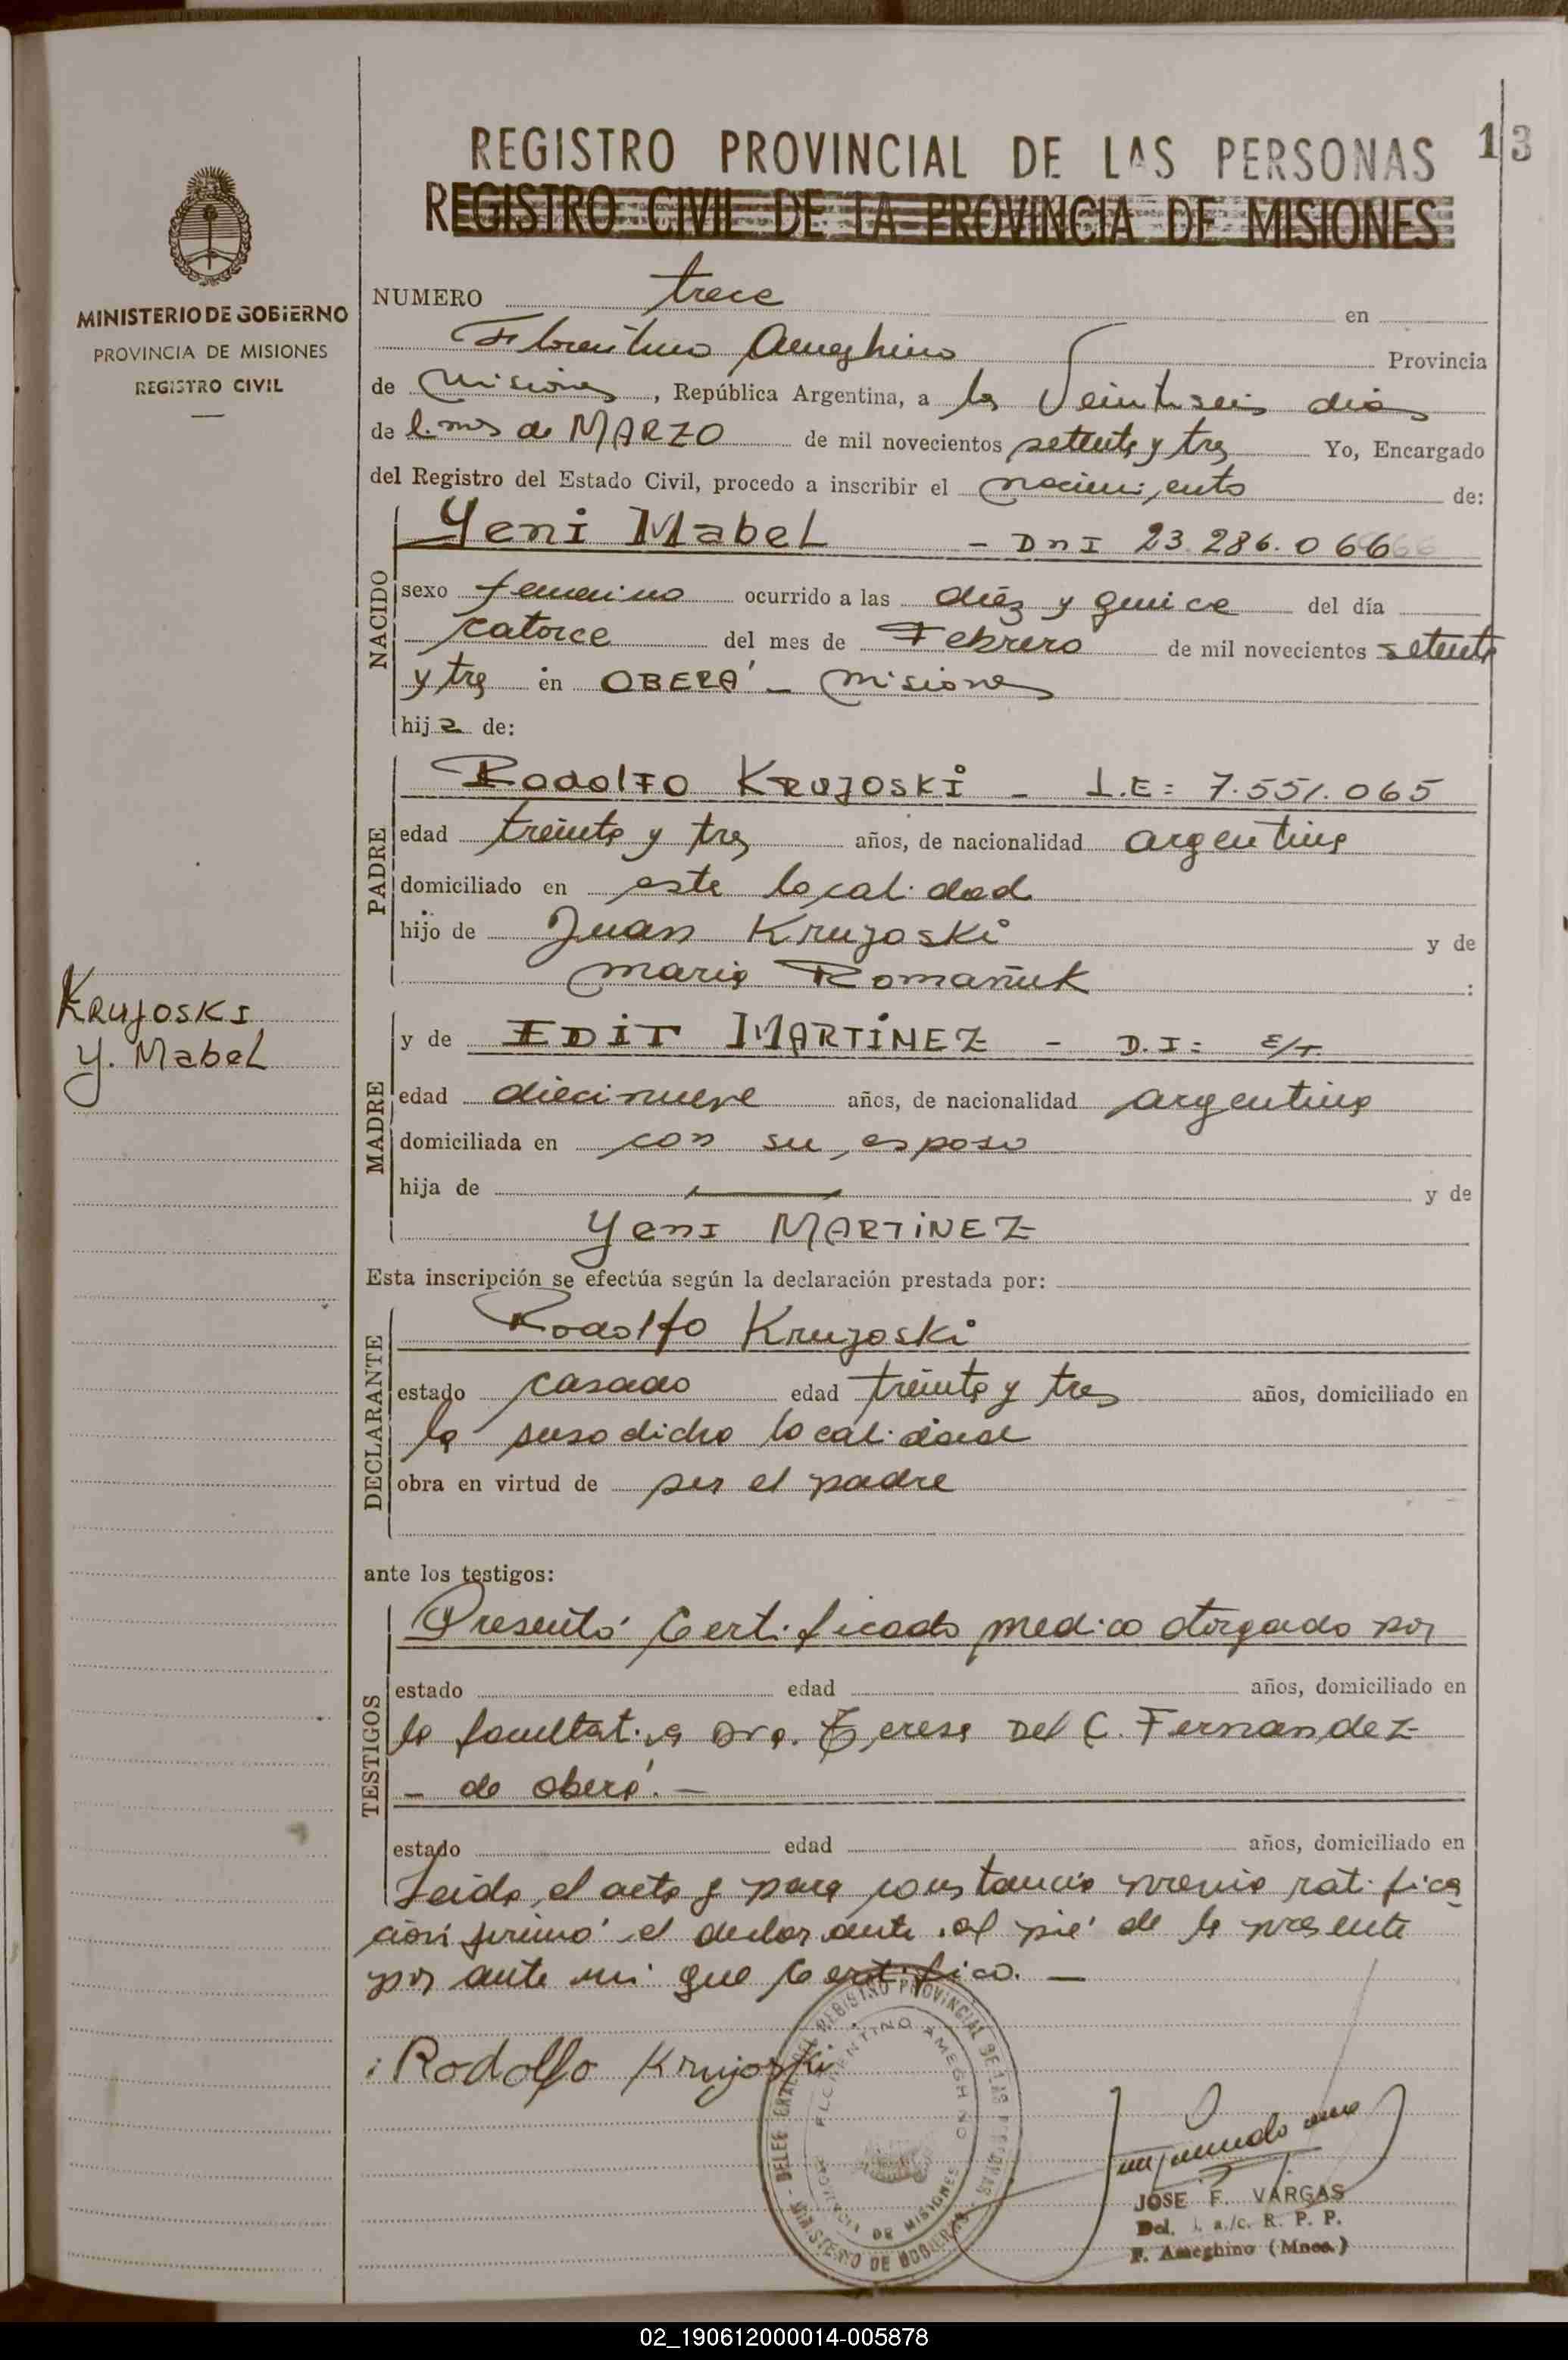 13
REGISTRO PROVINCIAL DE LAS PERSONAS
REGISTRO CIVIL DE LA PROVINCIA DE MISIONES
MINISTERIO DE GOBIERNO
PROVINCIA DE MISIONES
REGISTRO CIVIL
NUMERO trece en
Florentino Ameghino Provincia
de Misiones, República Argentina, a los Veintiseis dias
de l mes de MARZO de mil novecientos setenta y tres Yo, Encargado
del Registro del Estado Civil, procedo a inscribir el nacimiento de:
NACIDO
Yeni Mabel - DnI 23.286.066
sexo femenino ocurrido a las diéz y quince del día
catorce del mes de Febrero de mil novecientos setenta
y tres en OBERÁ - Misiones
hija de:
PADRE
Rodolfo Krujoski - L.E: 7.551.065
edad treinta y tres años, de nacionalidad argentina
domiciliado en esta localidad
hijo de Juan Krujoski y de
Maria Romañuk :
Krujoski
Y. Mabel
MADRE
y de EDIT MARTÍNEZ - D.I: E/T.
edad diecinueve años, de nacionalidad argentina
domiciliada en con su esposo
hija de y de
Yeni MARTINEZ
Esta inscripción se efectúa según la declaración prestada por:
DECLARANTE
Rodolfo Krujoski
estado casado edad treinta y tres años, domiciliado en
la susodicha localidad
obra en virtud de ser el padre
ante los testigos:
TESTIGOS
Presentó Certificado medico otorgado por
estado edad años, domiciliado en
la facultativa Dra. Teresa Del C. Fernandez
- de oberá. -
estado edad años, domiciliado en
Leida el acta y para constancia previa ratifica
ción firmó el declarante al pié de la presente
por ante mi que Certifico. -
Rodolfo Krujoski
DELEG. GRAL. DEL REGISTRO PROVINCIAL DE LAS PERSONAS
FLORENTINO AMEGHINO
PROVINCIA DE MISIONES
MINISTERIO DE GOBIERNO
JOSE F. VARGAS
Del. a./c. R. P. P.
F. Ameghino (Mnes.)
02_190612000014-005878